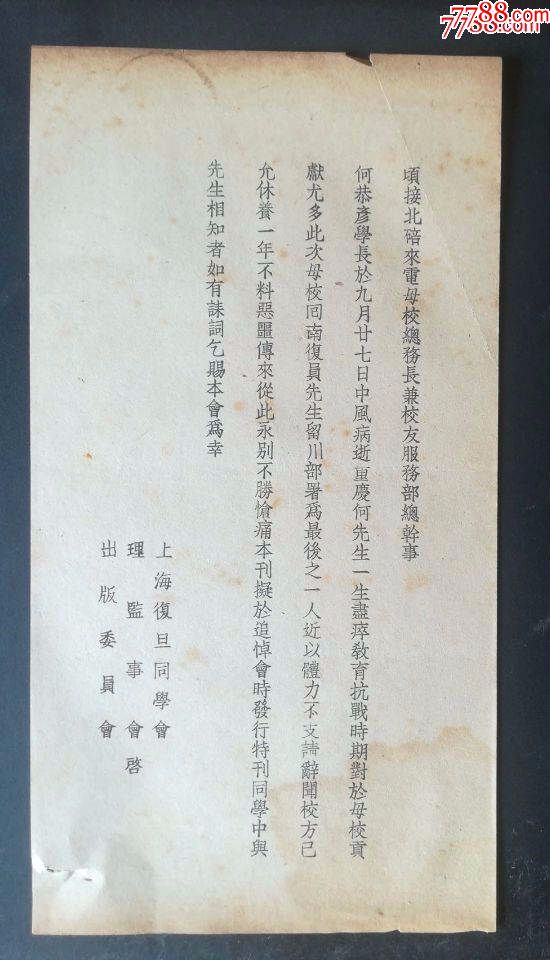 頃接北碚來電母校總務長兼校友服務部總幹事
何恭彥學長於九月廿七日中風病逝重慶何先生一生盡瘁敎育抗戰時期對於母校貢
獻尤多此次母校回南復員先生留川部署爲最後之一人近以體力不支請辭聞校方已
允休養一年不料惡噩傳來從此永别不勝愴痛本刊擬於追悼會時發行特刊同學中與
先生相知者如有誄詞乞賜本會爲幸
上海復旦同學會
理監事會啓
出版委員會
7788.com
7788.com